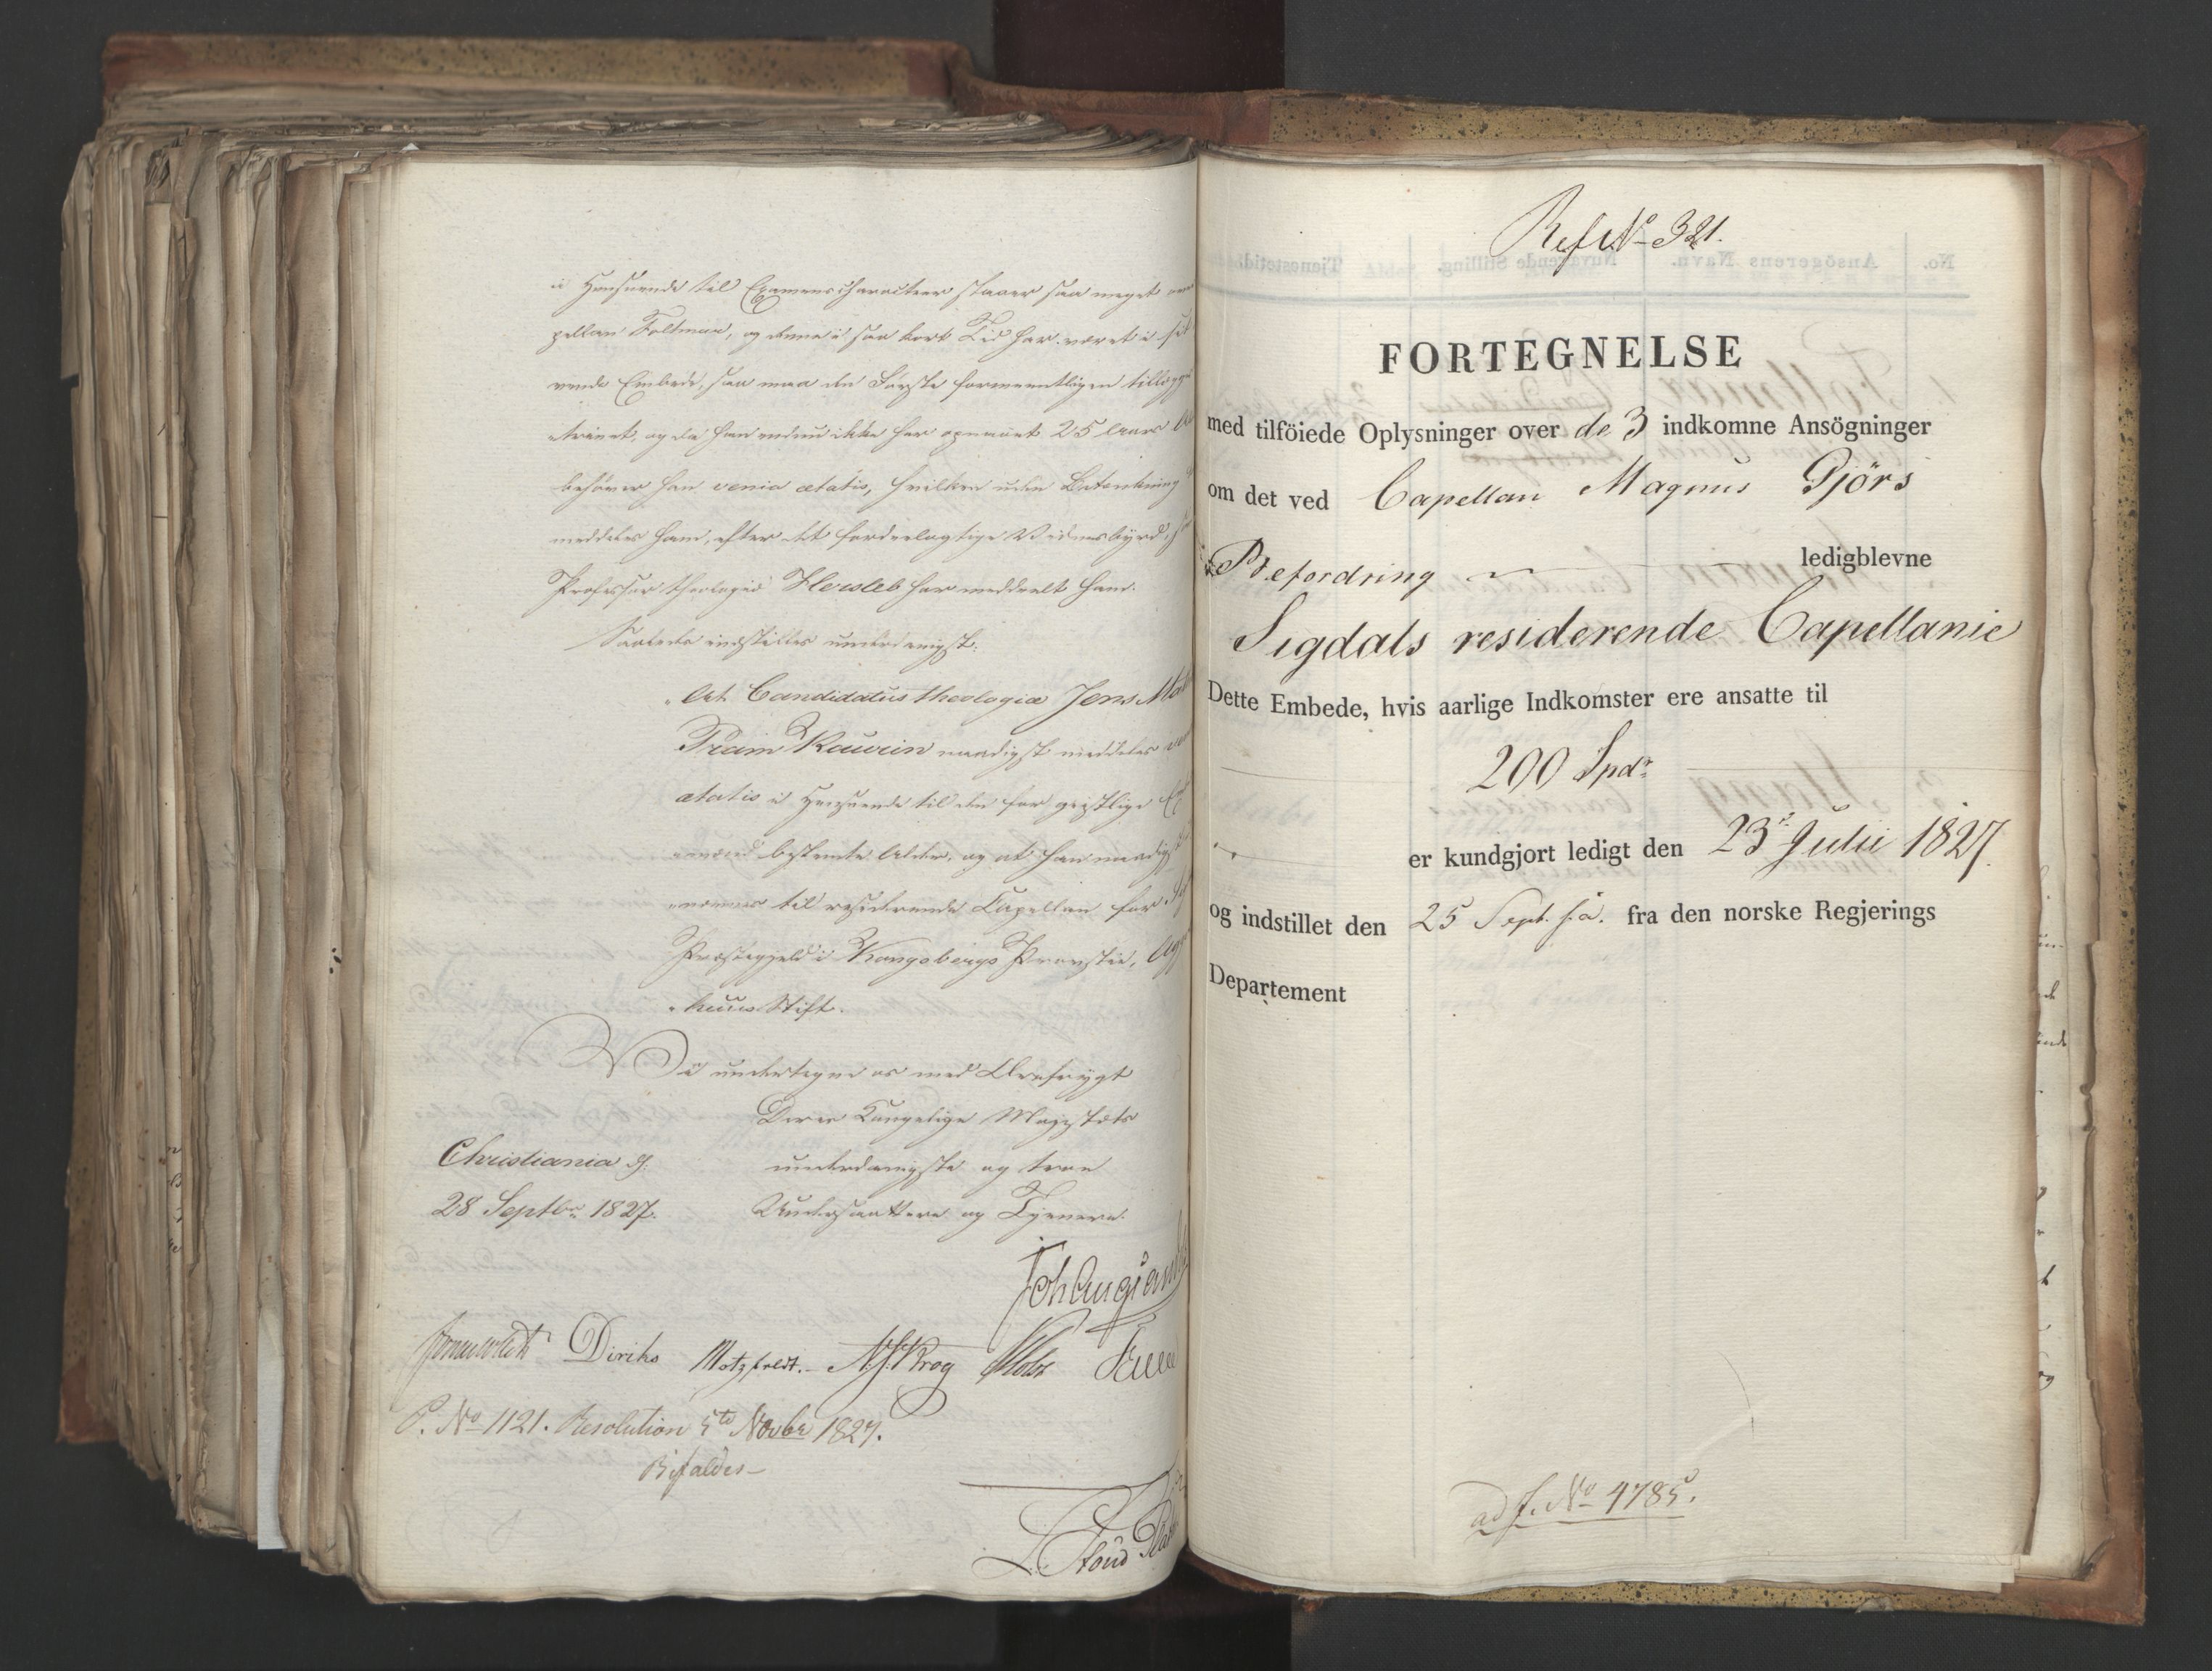 i Henseende til Examenscharacteer staaer saa meget
pellan Foltmar, og denne i saa kort Tid har været i
vende Embede, saa maa den Første formeentligen tillægge
trinet, og da han endnu ikke har opnaaet 25 Aars
behøver han venia ætatis, hvilken uden Betænkning
meddeles ham, efter det fordeelagtige Vidnesbyrd,
Professor theologiæ Hersleb har meddeelt ham.
Saaledes indstilles underdanigst:
"At Candidatus theologiæ Jens
Pram Kaurin naadigst meddeles
ætatis i Henseende til den for geistlige
bestemte Alder, og at han naadigst
til residerende Capellan for
Præstegjeld i Kongsbergs Provstie,
huus Stift.
Vi undertegne os med Ærefrygt
Deres Kongelige Majestæts
Christiania d. underdanigste og troe
28 Septbr 1827. Undersaattere og Tjenere.
Diriks Motzfeldt. Krog
P. No 1121. Resolution 5te Novbr 1827.
Bifaldes
Ref No 321.
FORTEGNELSE
med tilföiede Oplysninger over de 3 indkomne Ansögninger
om det ved Capellan Magnus Gjörs
Befordring ledigblevne
Sigdals residerende Capellanie
Dette Embede, hvis aarlige Indkomster ere ansatte til
200 Spdr
er kundgjort ledigt den 23 Julii 1827
og indstillet den 25 Sept. s.a. fra den norske Regjerings
Departement
ad J. No 4785.